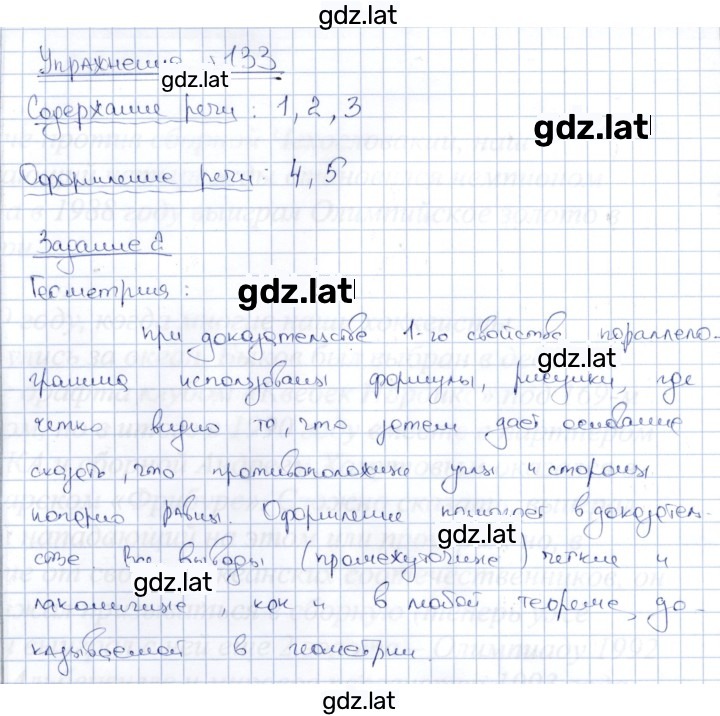 gdz.lat
Упражнение 133
gdz.lat
Содержание речи: 1, 2, 3
gdz.lat
Оформление речи: 4, 5
Задание 2
Геометрия:
gdz.lat
при доказательстве 1-го свойства пораллело-
gdz.lat
грамма использованы формулы, рисунки, где
четко видно то, что затем дает основание
сказать, что противоположные углы и стороны
попарно равны. Оформление помогает в доказатель-
gdz.lat
стве. Его выводы (промежуточные) четкие и
gdz.lat
лаконичные, как и в любой теореме, до-
казываемой в геометрии.
gdz.lat